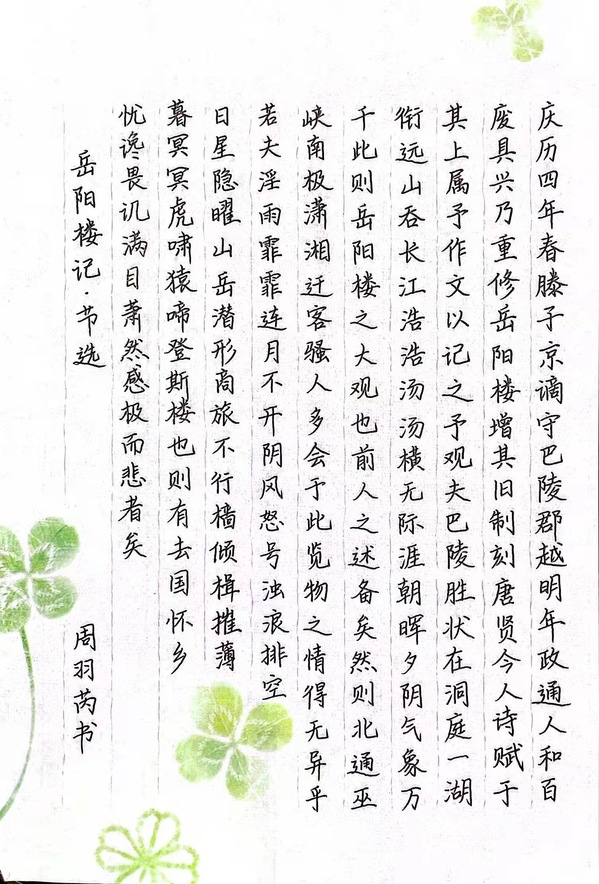 庆历四年春滕子京谪守巴陵郡越明年政通人和百
废具兴乃重修岳阳楼增其旧制刻唐贤今人诗赋于
其上属予作文以记之予观夫巴陵胜状在洞庭一湖
衔远山吞长江浩浩汤汤横无际涯朝晖夕阴气象万
千此则岳阳楼之大观也前人之述备矣然则北通巫
峡南极潇湘迁客骚人多会于此览物之情得无异乎
若夫淫雨霏霏连月不开阴风怒号浊浪排空
日星隐曜山岳潜形商旅不行樯倾楫摧薄
暮冥冥虎啸猿啼登斯楼也则有去国怀乡
忧谗畏讥满目萧然感极而悲者矣
岳阳楼记·节选
周羽芮书